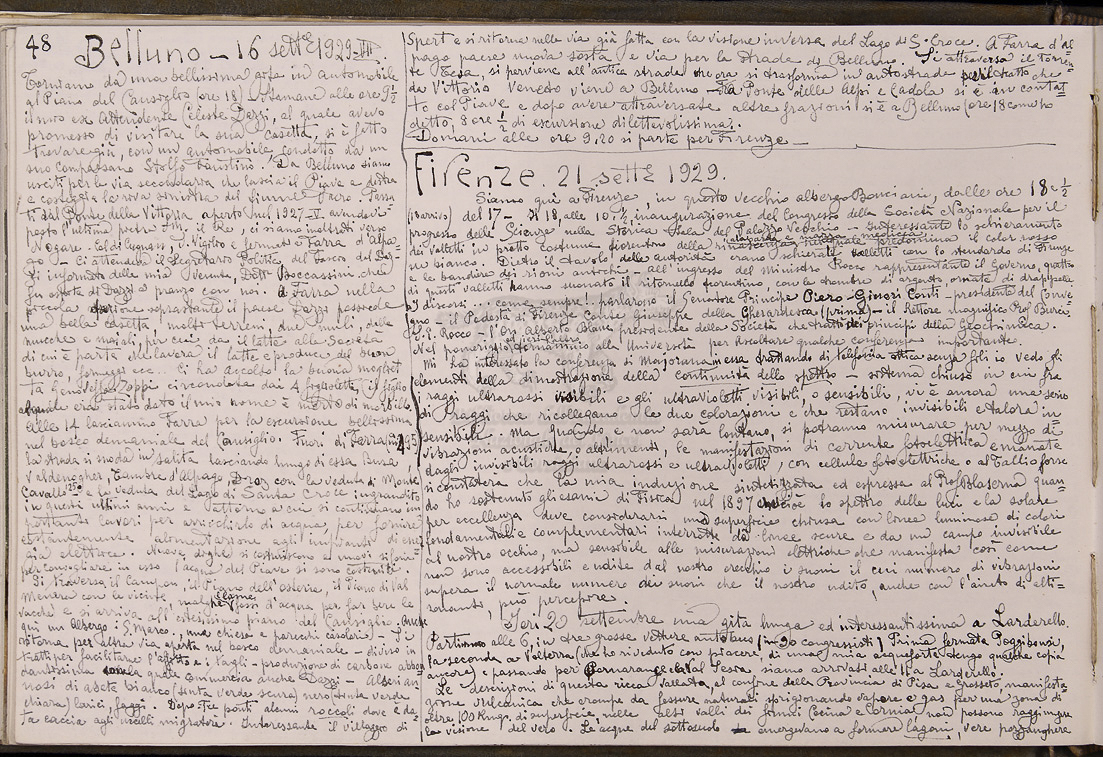 48
Belluno - 16 sett.e 1929 - VII.
Torniamo da una bellissima gita in automobile
al Piano del Cansiglio (ore 18). Stamane alle ore 9½
il mio ex attendente Celeste Dazzi, al quale avevo
promesso di visitare la sua casetta, si è fatto
trovare già, con un automobile condotto da un
suo compaesano Stelfo Faustino. Da Belluno siamo
usciti per la via secondaria che lascia il Piave a destra
e costeggia la riva sinistra del fiume Sacro. Passa
to sul Ponte della Vittoria aperto nel 1927-V avendovi
posto l'ultima pietra il Re, ci siamo inoltrati verso
Nogare - , S. Vigilio e fermati a Farra d'Alpa=
go - Ci attendeva il Segretario Politico del Fascio del
to informato della mia venuta, Dott. Boccassini che
fu ospite di Dazzi a pranzo con noi. A Farra nella
piccola soprastante il paese Dazzi possiede
una bella casetta, molti terreni, due , delle
mucche e maiali, per cui da il latte alla Società
di cui è parte che lavora il latte e produce del buon
burro, formaggi ecc.. Ci ha accolto la buona moglie
ta Zoppi circondata dai 4 figlioletti, il figlio
al quale era stato dato il mio nome è morto di morbillo.
Alle 14 lasciammo Farra per la escursione bellissima
nel bosco demaniale del Cansiglio. Fuori di Ferra (395)
la strada si snoda in salita lasciando lungo di essa Buse,
Valdenogher, Tambre d'Alpago, con la veduta di Monte
Cavallo e la veduta del Lago di Santa Croce ingrandito
in questi ultimi anni e attorno a cui si continuano im
portanti lavori per arricchirlo di acqua, per fornire
costantemente alimentazione agli impianti di ener
gia elettrica. Nuove dighe si costruiscono e nuovi sifoni
per convogliare in esso l'acqua del Piave si sono costruiti.
Si traversa il Campon, il Piano dell'osteria, il Piano di Val
Menera con le vicine malghe fossi d'acqua per far bere le
vacche e si arriva all'estesissimo piano del Cansiglio. Anche
qui un Albergo S. Marco, una chiesa e parecchi casolari - Si
ritorna per altra via aperta nel bosco demaniale - diviso in
tratti per facilitare i tagli - produzione di carbone abbon
dantissima con la quale commercia anche Dazzi - Alberi an
nosi di abete bianco (tinta verde scura) nero (tinta verde
chiara) larici, faggi. Dopo tre ponti alcuni roccoli dove è da
ta caccia agli uccelli migratori. Interessante il villaggio di
Spert e si ritorna nella via già fatta con la visione inversa del Lago di S. Croce. A Farra d'Al
pago paese nuova sosta e via per la strada di Belluno. Si attraversa il torren
te Tesa, si perviene all'antica strada che ora si trasforma in autostrada per il tratto che
da Vittorio Veneto viene a Belluno - Da Ponte nelle Alpi e Cadola si è in contat
to col Piave e dopo avere attraversate altre frazioni si è a Belluno (ore 18 come ho
detto, 8 ore ½ di escursione dilettevolissima.
Domani alle ore 9.20 si parte per Firenze -
Firenze. 21 sett.e 1929.
Siamo qui a Firenze, in questo vecchio albergo Bonciani, dalle ore 18½
(l'arrivo) del 17 - Il 18, alle 10½ inaugurazione del Congresso della Società Nazionale per il
progresso delle Scienze nella Storica Sala del Palazzo Vecchio - Interessante lo schieramento
dei valletti in pretto costume fiorentino della predomina il color rosso
ne bianco. Dietro il tavolo delle autorità erano schierati valletti con lo stendardo di Firenze
e le bandiere dei rioni antichi - All'ingresso del Ministro Rocco rappresentante il Governo, quattro
di questi valletti hanno suonato il ritornello fiorentino, con le trombe di argento, ornate di drappelle
ai discorsi ... come sempre! parlarono il Senatore Principe Piero Ginori Conti - presidente del Conve=
gno - il Podestà di Firenze Conte Giuseppe della Gherardesca (prima) - il Rettore magnifico Prof. Burci,
S. E. Rocco - l'On. Alberto Blanc presidente della Società che tratti dei principi della Geochimica.
Nel pomeriggio torniamo alla Università per ascoltare qualche conferenza importante.
Mi ha interessato la conferenza di Majorana trattando di telefonia ottica senza fili io vedo gli
elementi della dimostrazione della continuità dello spettro - sistema chiuso in cui fra
i raggi ultrarossi visibili e gli ultravioletti visibili, o sensibili, vi è ancora una serie
di raggi che ricollegano le due colorazioni e che restano invisibili e talora in
sensibili. Ma quando e non sarà lontano, si potranno misurare per mezzo di
vibrazioni acustiche, o altrimenti, le manifestazioni di corrente fotoelettrica emanate
dagli invisibili raggi ultrarossi e ultravioletti, con cellule fotoelettriche o al Tallio forse
si constaterà che la mia induzione sintetizzata ed espressa al Prof. Blaserna quan
do ho sostenuto gli esami di Fisica nel 1897 cioè lo spettro delle luci e la solare
per eccellenza deve considerarsi una superficie chiusa con linee luminose di colori
fondamentali e complementari interrotte da linee scure e da un campo invisibile
al nostro occhio, ma sensibile alle misurazioni elettriche che manifesta così come
non sono accessibili e udite dal nostro orecchio i suoni il cui numero di vibrazioni
supera il normale numero dei suoni che il nostro udito, anche con l'aiuto di alti=
sonanti, può percepire.
Ieri 20 settembre una gita lunga ed interessantissima a Larderello.
Partimmo alle 6, in tre grosse vetture autobus (in 90 congressisti) Prima fermata Poggibonsi,
la seconda a Volterra (che ho riveduto con piacere, di una mia acquaforte tengo qualche copia
ancora) e passando per Pomarance e la Val Cecina, siamo arrivati alle 11 a Larderello.
Le descrizioni di questa ricca vallata, al confine della Provincia di Pisa e Grosseto, manifesta=
zione vulcanica che erompe da fessure naturali sprigionando vapore e gas per una zona di
oltre 100 Kmq. di superficie, nelle alte valli dei fiumi Cecina e Cornia, non possono raggiungere
la visione del vero. Le acque del sottosuolo emergevano a formare lagoni, vere pozzanghere